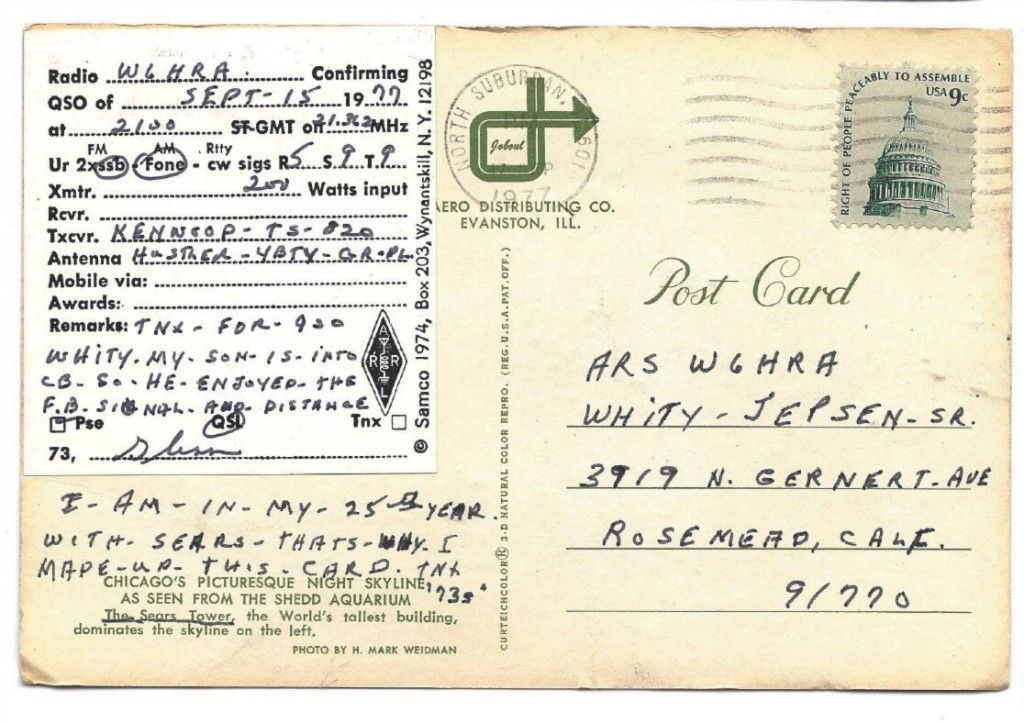 Radio W6HRA. Confirming
QSO of SEPT-15 1977
at 2100 ST GMT on 21.362 MHz
FM AM Rtty
Ur 2xssb - Fone - cw sigs R5 S9 T9
Xmtr. 200 Watts input
Rcvr.
Txcvr. KENWOOD-TS-820
Antenna HUSTLER-4BTV-GR-PL
Mobile via:
Awards:
Remarks: TNX-FOR-QSO
WHITY. MY. SON-IS-INTO
CB-SO-HE-ENJOYED-THE
F.B-SIGNAL-AND-DISTANCE
Pse QSL Tnx
73,
© Samco 1974, Box 203, Wynantskill, N. Y. 12198
A
R R
L
I-AM-IN-MY-25TH YEAR.
WITH-SEARS-THATS-WHY-I
MADE-UP-THIS-CARD. TNX
"73s"
CHICAGO'S PICTURESQUE NIGHT SKYLINE
AS SEEN FROM THE SHEDD AQUARIUM
The Sears Tower, the World's tallest building,
dominates the skyline on the left.
PHOTO BY H. MARK WEIDMAN
NORTH SUBURBAN, 601
PM
1977
Joboul
AERO DISTRIBUTING CO.
EVANSTON, ILL.
CURTEICHCOLOR® 3-D NATURAL COLOR REPRO. (REG. U.S.A. PAT. OFF.)
RIGHT OF PEOPLE PEACEABLY TO ASSEMBLE
USA 9c
Post Card
ARS W6HRA
WHITY-JEPSEN-SR.
3919 N. GERNERT-AVE
ROSEMEAD, CALF.
91770